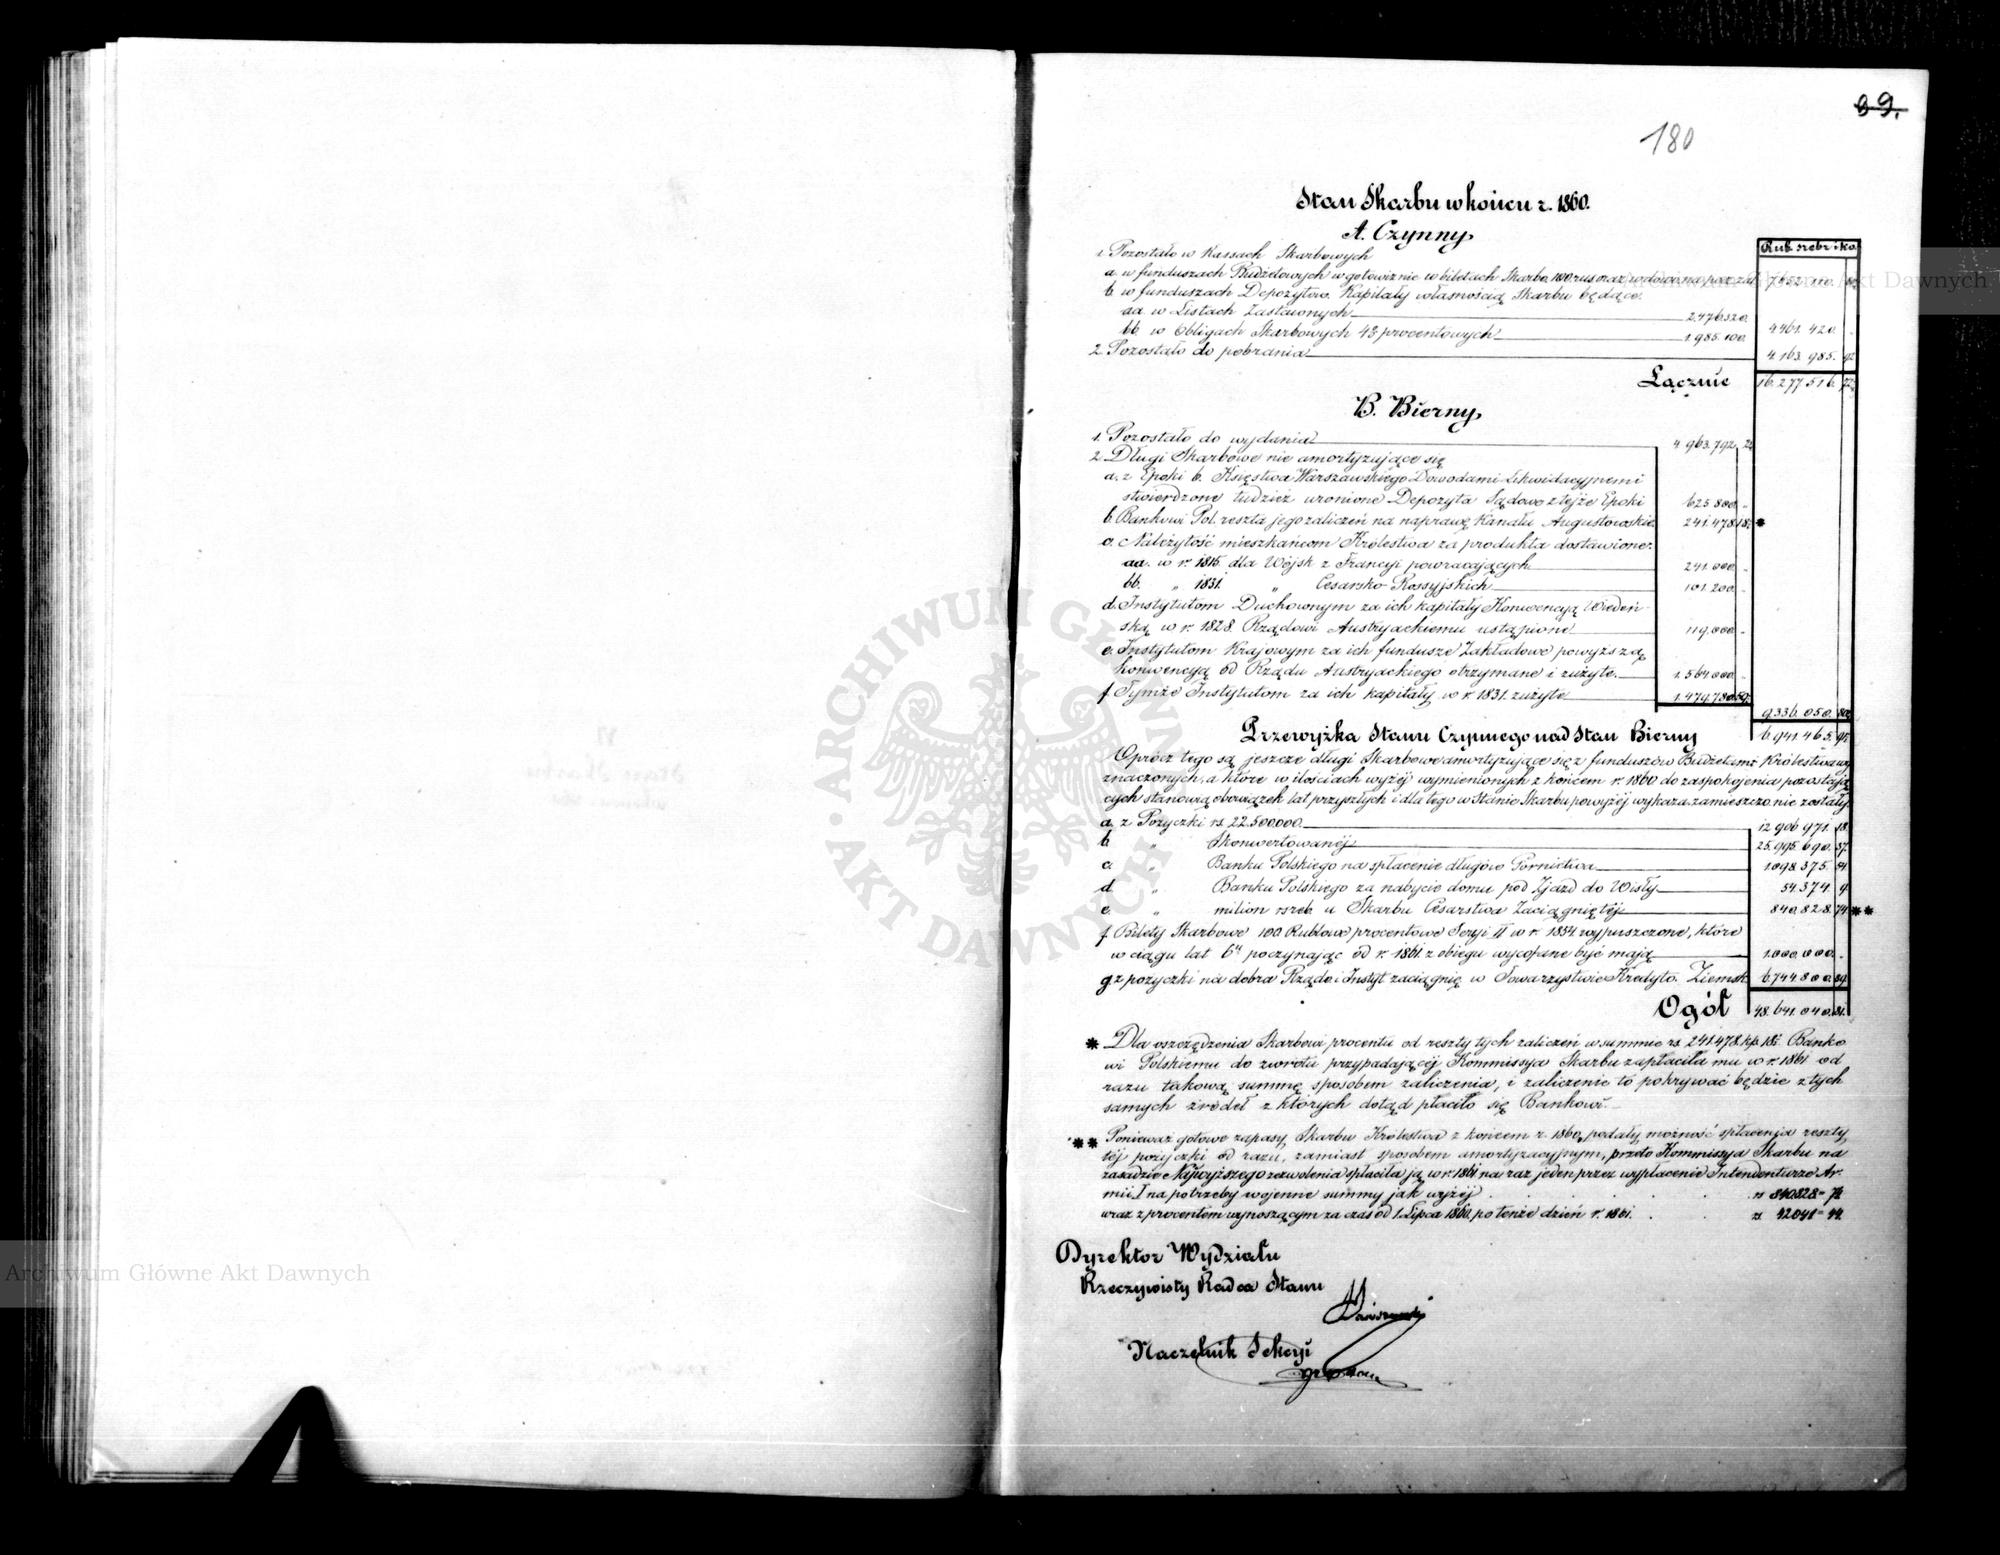 89.
180
Stan Skarbu w końcu r. 1860.
A. Czynny,
Rub. srebr. ko.
1. Pozostało w Kassach Skarbowych
a. w funduszach Budżetowych w gotowiźnie w biletach Skarbo. 100 rus oraz
b. w funduszach Depozytow. Kapitały własnością Skarbu będące.
aa. w Listach Zastawnych 2.476.320.
bb. w Obligach Skarbowych 4% procentowych 1.985.100. 4.461.420. -
2. Pozostało do pobrania 4.163.985. 92
Łącznie 16.277.516. 72
B. Bierny,
1. Pozostało do wydania 4.963.792.
2. Długi Skarbowe nie amortyzujące się
a. z Epoki b. Księstwa Warszawskiego Dowodami Likwidacyjnemi
stwierdzone tudzież uronione Depozyta Sądowe z tejże Epoki 625.800. -
b. Bankowi Pol. reszta jego zaliczeń na naprawę Kanału Augustowskie. 241.478. 18 *
c. Należytość mieszkańcom Królestwa za produkta dostawione:
aa. w r. 1815. dla Wójsk z Francyi powracających 241.000. -
bb. " 1831. " Cesarsko-Rossyjskich 101.200. -
d. Instytutom Duchownym za ich kapitały Konwencyją Wiedeń-
ską w r. 1828. Rządowi Austryackiemu ustąpione 119.000. -
e. Instytutom Krajowym za ich fundusze Zakładowe powyższą
konwencyją od Rządu Austryackiego otrzymane i zużyte. 1.564.000. -
f. Tymże Instytutom za ich kapitały w r. 1831. zużyte 1.479.780.
9.336.050. 80
Przewyżka Stanu Czynnego nad Stan Bierny 6.941.465.
Oprócz tego są jeszcze długi Skarbowe amortyzujące się z funduszów Budżetami Królestwa wy-
znaczonych, a które w ilościach wyżej wymienionych z końcem r. 1860 do zaspokojenia pozostają-
cych stanowią obowiązek lat przyszłych i dla tego w Stanie Skarbu powyżej wykaza. zamieszczone nie zostały
a. z Pożyczki rs. 22.500.000. 12.906.971. 18.
b. " Skonwertowanéj 25.995.690. 37.
c. " Banku Polskiego na spłacenie długów Górnictwa 1.098.375.
d. " Banku Polskiego za nabycie domu pod Zjazd do Wisły 54.374. 9.
e. " milion rsreb. u Skarbu Cesarstwa Zaciągniętéj 840.828. 74 **
f. Bilety Skarbowe 100 Rublowe procentowe Seryi II w r. 1854 wypuszczone, które
w ciągu lat 6u poczynając od r. 1861. z obiegu wycofane być mają 1.000.000. -
g. z pożyczki na dobra Rządo. i Instyt. zaciągnię. w Towarzystwie Kredyto. Ziemsk. 6.744.800. 89.
Ogół 48.641.040. 81.
* Dla oszczędzenia Skarbowi procentu od reszty tych zaliczeń w summie rs. 241.478. kp. 18½ Banko-
wi Polskiemu do zwrotu przypadającéj Kommissya Skarbu zapłaciła mu w r. 1861. od
razu takową summę sposobem zaliczenia, i zaliczenie to pokrywać będzie z tych
samych źródeł z których dotąd płaciło się Bankowi. -
** Ponieważ gotowe zapasy Skarbu Królestwa z końcem r. 1860, podały możność spłacenia reszty
téj pożyczki od razu, zamiast sposobem amortyzacyjnym, przeto Kommissya Skarbu na
zasadzie Najwyższego zezwolenia spłaciła ją w r. 1861 na raz jeden przez wypłacenie Intendenturze Ar-
mii I na potrzeby wojenne summy jak wyżéj . . . . . rs 840.828 = 74
wraz z procentem wynoszącym za czas od 1. Lipca 1860. po tenże dzień r. 1861. . . rs. 42041 = 44.
Dyrektor Wydziału
Rzeczywisty Radca Stanu
Naczelnik Sekcyi
ARCHIWUM GŁÓWNE AKT DAWNYCH
Archiwum Główne Akt Dawnych
Archiwum Główne Akt Dawnych